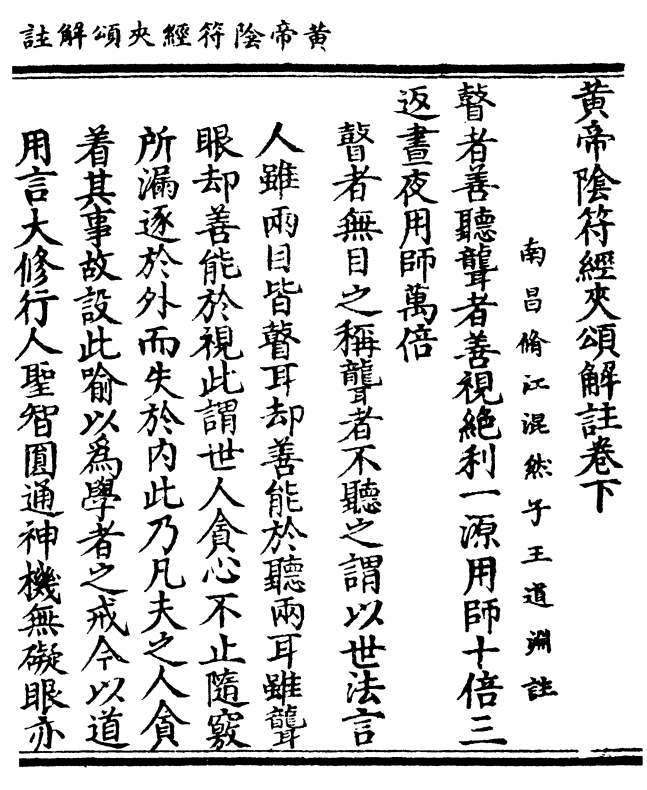 黃帝陰符經夾頌解註
黃帝陰符經夾頌解註卷下
南昌脩江混然子王道淵註
瞽者善聽聾者善視絶利一源用師十倍三
返晝夜用師萬倍
瞽者無目之稱聾者不聽之謂以世法言
人雖兩目皆瞽耳却善能於聽兩耳雖聾
眼却善能於視此謂世人貪心不止隨竅
所漏逐於外而失於内此乃凡夫之人貪
着其事故設此喻以爲學者之戒令以道
用言大修行人聖智圓通神機無礙眼亦